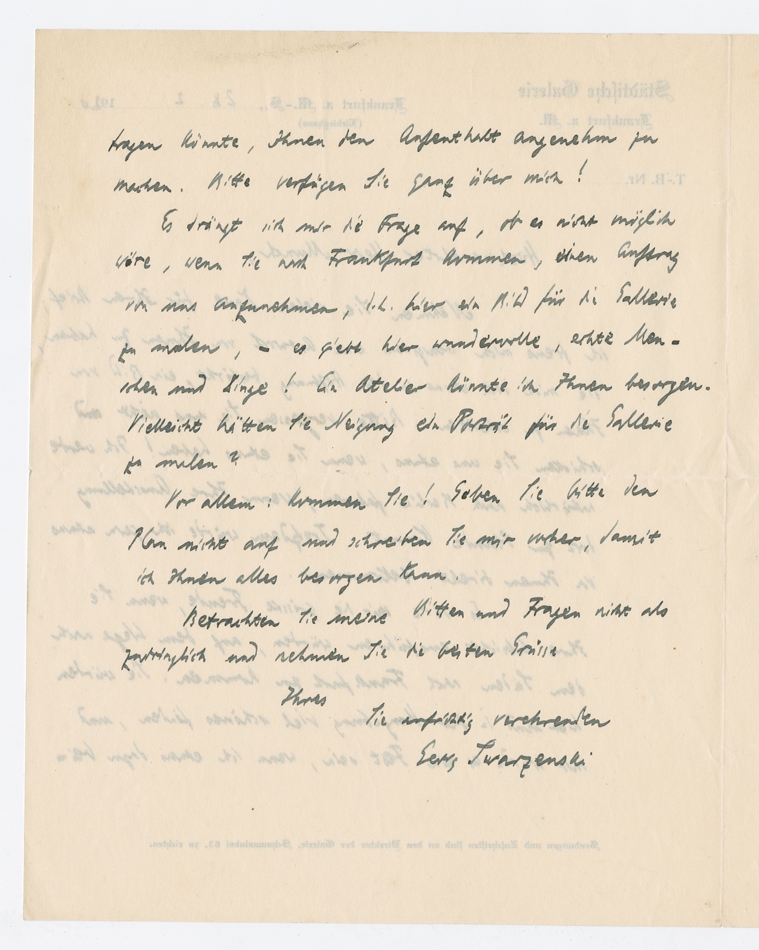 tragen könnte, Ihnen den Aufenthalt angenehm zu
machen. Bitte verfügen Sie ganz über mich!
Es drängt sich mir die Frage auf, ob es nicht möglich
wäre, wenn Sie nach Frankfurt kommen, einen Auftrag
von uns anzunehmen, d.h. hier ein Bild für die Gallerie
zu malen, – es giebt hier wundervolle, echte Men-
schen und Dinge! Ein Atelier könnte ich Ihnen besorgen.
Vielleicht hätten Sie Neigung ein Porträt für die Gallerie
zu malen?
Vor allem: kommen Sie! Geben Sie bitte den
Plan nicht auf und schreiben Sie mir vorher, damit
ich Ihnen alles besorgen kann.
Betrachten Sie meine Bitten und Fragen nicht als
zudringlich und nehmen Sie die besten Grüsse
Ihres
Sie aufrichtig verehrenden
Georg Swarzenski